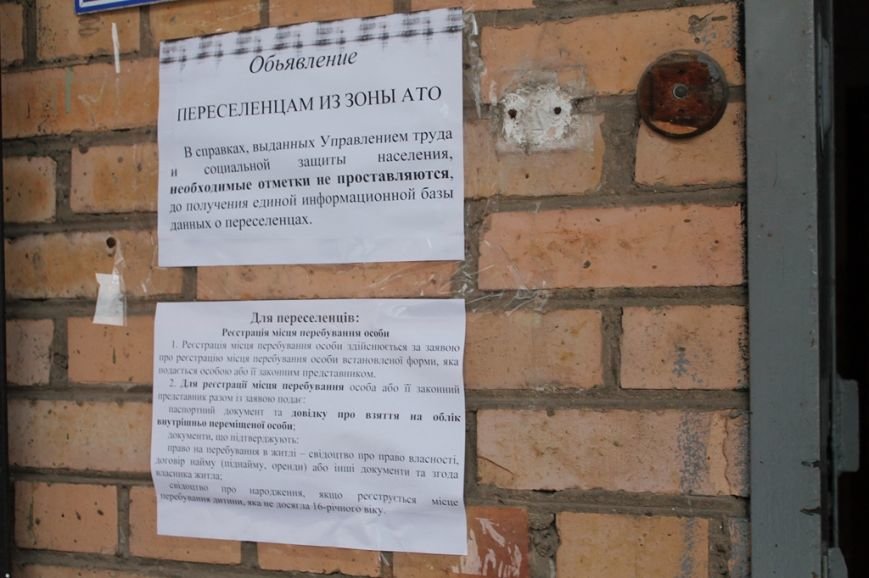 Обьявление
ПЕРЕСЕЛЕНЦАМ ИЗ ЗОНЫ АТО
В справках, выданных Управлением труда
и социальной защиты населения,
необходимые отметки не проставляются,
до получения единой информационной базы
данных о переселенцах.
Для переселенців:
Реєстрація місця перебування особи
1. Реєстрація місця перебування особи здійснюється за заявою
про реєстрацію місця перебування особи встановленої форми, яка
подається особою або її законним представником.
2. Для реєстрації місця перебування особа або її законний
представник разом із заявою подає:
паспортний документ та довідку про взяття на облік
внутрішньо переміщеної особи;
документи, що підтверджують:
право на перебування в житлі – свідоцтво про право власності,
договір найму (піднайму, оренди) або інші документи та згода
власника житла;
свідоцтво про народження, якщо реєструється місце
перебування дитини, яка не досягла 16-річного віку.